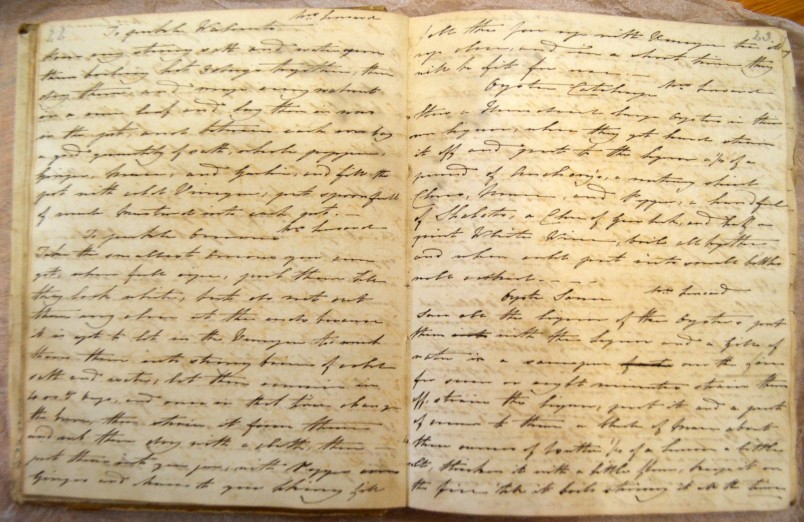 22
To pickle Walnuts Mrs. Howard
strong salt and water
them boiling hot days together, then
dry them, and wrap every walnut
in a vine leaf, and lay them in rows
in the pot, and between each row lay
a good quantity of salt, whole pepper,
Ginger, Mace, and Garlic, and fill the
pot with cold Vinegar, put spoonfull
of made Mustard into each pot.
To pickle Onions Mrs. Howard
Take the smallest Onions you can
get, when full ripe, peel them till
they look white, but do not cut
them very close at the ends because
it is apt to let in the Vinegar too much
throw them into strong brine of cold
salt and water, let them remain in
4 or 5 days, and once in that time change
the brine, then strain it from them
and rub them dry with a cloth, then
put them into your jars, with Pepper
Ginger and to your liking fill
23
fill the jars up with Vinegar tie them
up close, and in a short time they
will be fit for use.
Oyster Catchup Mrs. Howard
Stew a Hundred large Oysters in their
own liquor, when they get hard strain
it off and put to the liquor a ½ of a
pound of Anchovys, a nutmeg sliced
Cloves, Mace, and Pepper, a handful
of Shalotes, a Clove of Garlick, and half a
pint White Wine, boil all together
and when cold put into small bottles
well corked.
Oyster Sauce Mrs. Howard
save all the liquor of the Oysters, put
them with the liquor and a
water in a saucepan over the fire
for seven or eight minutes strain them
off, strain the liquor, put it and a pint
of cream to them a blade of Mace about
three ounces of butter ½ of a lemon a little
salt, thicken it with a little flour, keep it on
the fire till it boils stirring it all the time